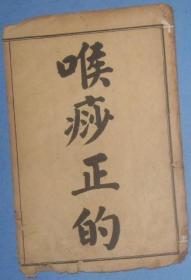 喉痧正的